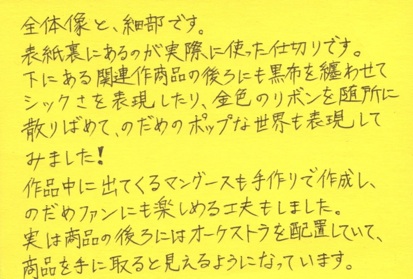 全体像と、細部です。
表紙裏にあるのが実際に使った仕切りです。
下にある関連作商品の後ろにも黒布を纏わせて
シックさを表現したり、金色のリボンを随所に
散りばめて、のだめのポップな世界も表現して
みました!
作品中に出てくるマングースも手作りで作成し、
のだめファンにも楽しめる工夫もしました。
実は商品の後ろにはオーケストラを配置していて、
商品を手に取ると見えるようになっています。